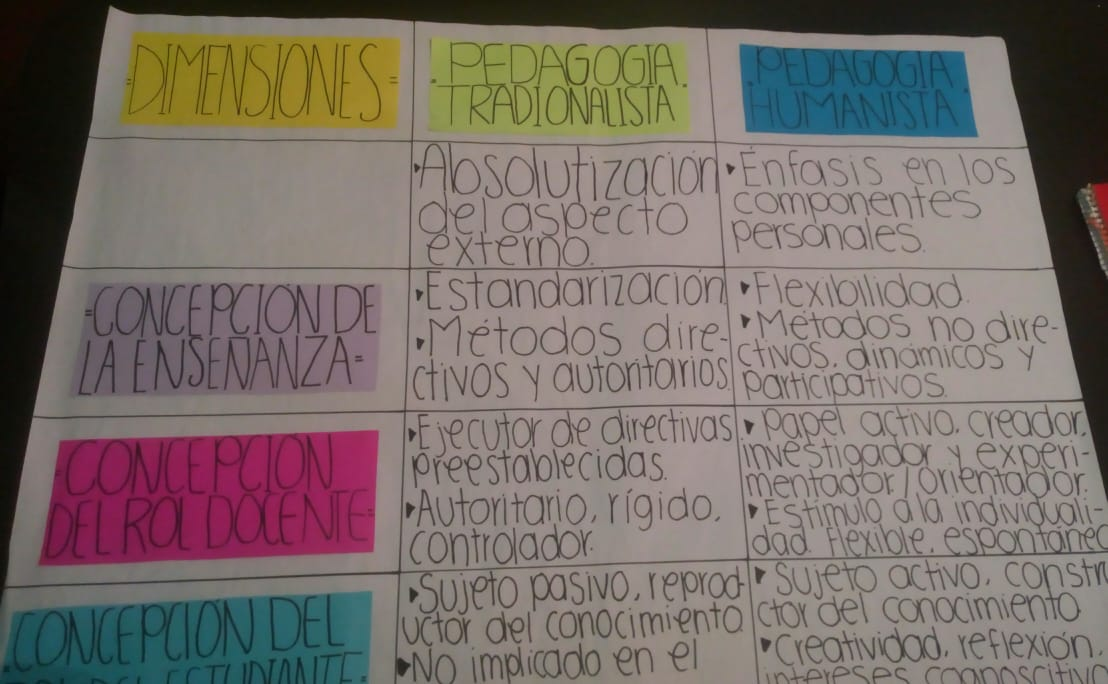 DIMENSIONES
PEDAGOGIA
TRADIONALISTA
PEDAGOGIA
HUMANISTA
Absolutización
del aspecto
externo.
Énfasis en los
componentes
personales.
=CONCEPCIÓN DE
LA ENSEÑANZA=
Estandarización
Métodos dire-
ctivos y autoritarios.
Flexibilidad.
Métodos no dire-
ctivos, dinámicos y
participativos.
=CONCEPCIÓN
DEL ROL DOCENTE=
Ejecutor de directivas
preestablecidas.
Autoritario, rígido,
controlador.
Papel activo, creador,
investigador y experi-
mentador/orientador.
Estímulo a la individuali-
dad. Flexible, espontáneo
CONCEPCIÓN DEL
DEL ESTUDIANTE
Sujeto pasivo, reprod-
uctor del conocimiento.
No implicado en el
Sujeto activo, constru
ctor del conocimiento
Creatividad, reflexión,
intereses cognoscitivo